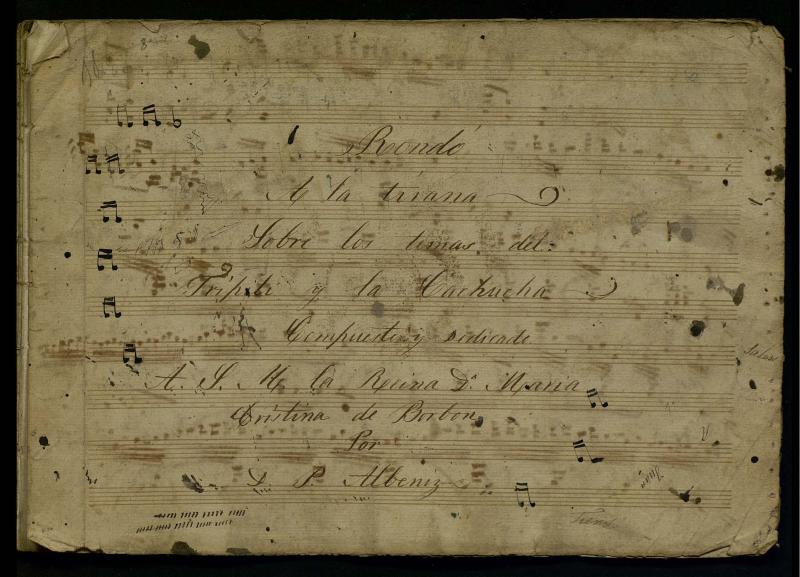 Rondó
A la tirana
Sobre los temas del.
Tripili y la Cachucha
Compuesto y dedicado
A. S. M. la Reina Dª Maria
Cristina de Borbon
Por
D. P. Albeniz